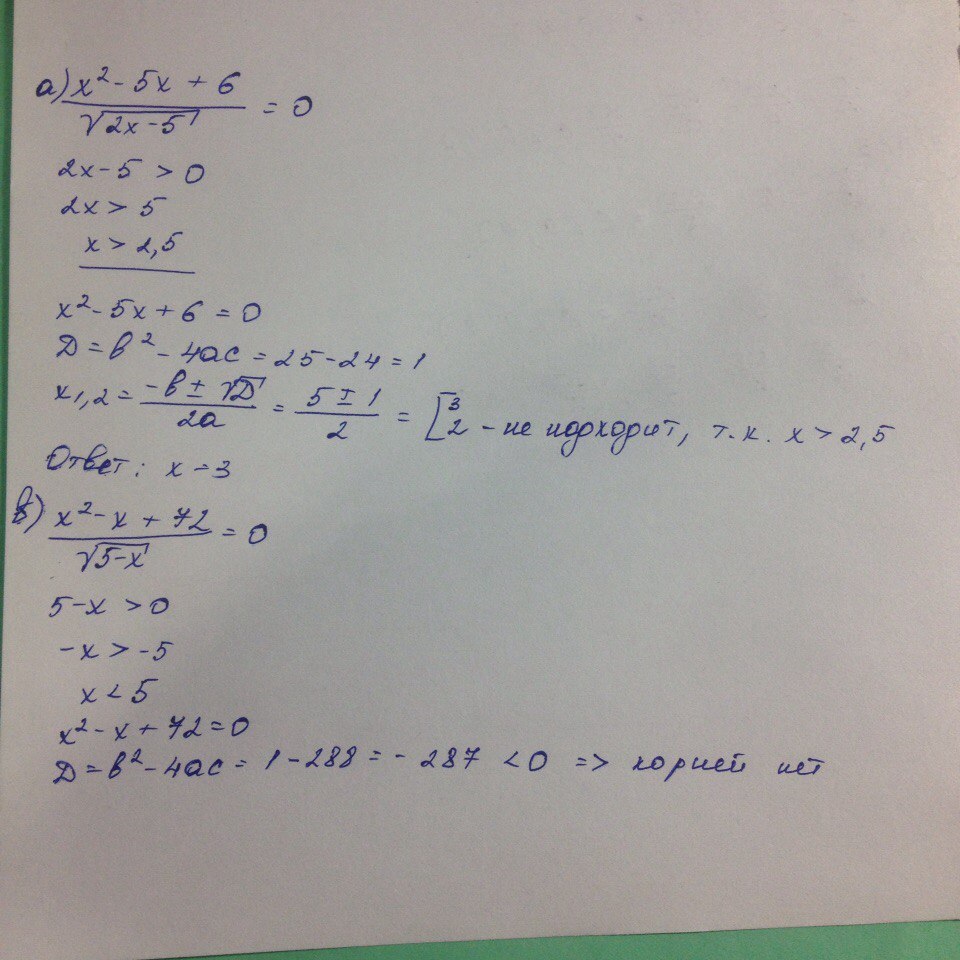 а) x² - 5x + 6 / √(2x-5) = 0
2x-5 > 0
2x > 5
x > 2,5
x² - 5x + 6 = 0
D = b² - 4ac = 25 - 24 = 1
x1,2 = -b ± √D / 2a = 5 ± 1 / 2 = [3 2 - не подходит, т.к. x > 2,5
Ответ: x = 3
б) x² - x + 72 / √(5-x) = 0
5-x > 0
-x > -5
x < 5
x² - x + 72 = 0
D = b² - 4ac = 1 - 288 = - 287 < 0 => корней нет